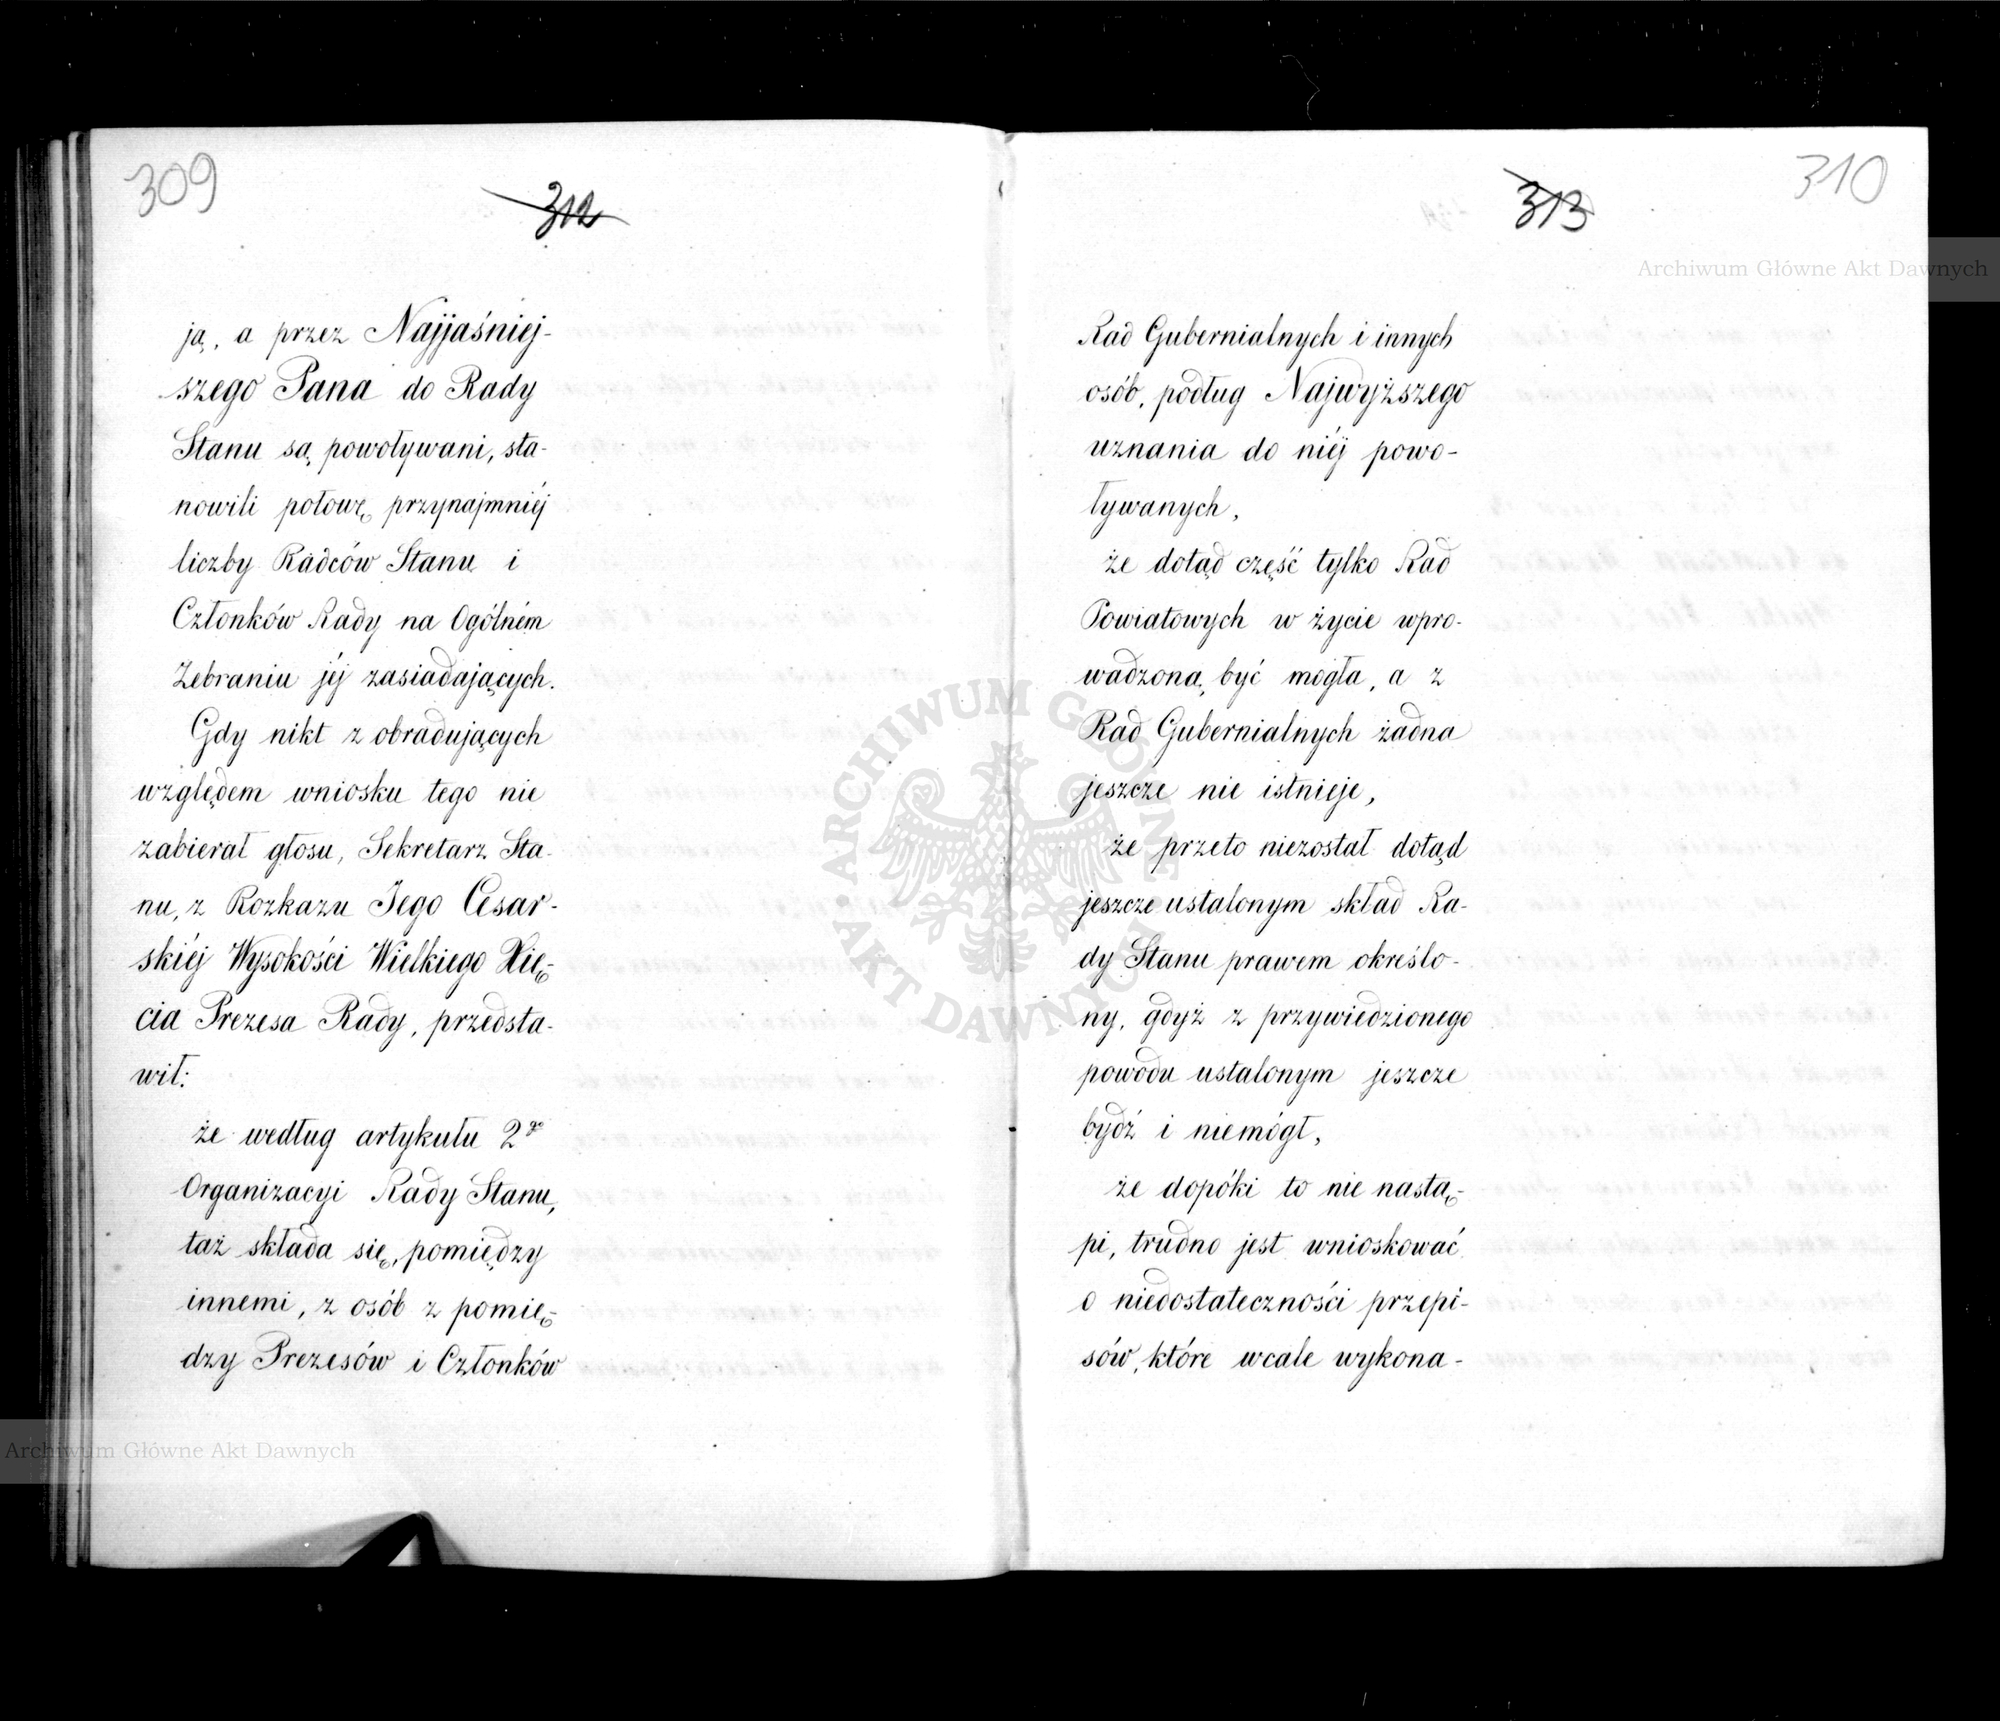 309
312
ją, a przez Najjaśniej-
szego Pana do Rady
Stanu są powoływani, sta-
nowili połowę przynajmniéj
liczby Radców Stanu i
Członków Rady na Ogólném
Zebraniu jéj zasiadających.
Gdy nikt z obradujących
względem wniosku tego nie
zabierał głosu, Sekretarz Sta-
nu, z Rozkazu Jego Cesar-
skiéj Wysokości Wielkiego Xię-
cia Prezesa Rady, przedsta-
wił:
że według artykułu 2go
Organizacyi Rady Stanu,
taż składa się, pomiędzy
innemi, z osób z pomię-
dzy Prezesów i Członków
310
313
Rad Gubernialnych i innych
osób, podług Najwyższego
uznania do niéj powo-
ływanych,
że dotąd część tylko Rad
Powiatowych w życie wpro-
wadzoną być mogła, a z
Rad Gubernialnych żadna
jeszcze nie istnieje,
że przeto niezostał dotąd
jeszcze ustalonym skład Ra-
dy Stanu prawem określo-
ny, gdyż z przywiedzionego
powodu ustalonym jeszcze
bydź i niemógł,
że dopóki to nie nastą-
pi, trudno jest wnioskować
o niedostateczności przepi-
sów, które wcale wykona-
Archiwum Główne Akt Dawnych
ARCHIWUM GŁÓWNE AKT DAWNYCH
Archiwum Główne Akt Dawnych